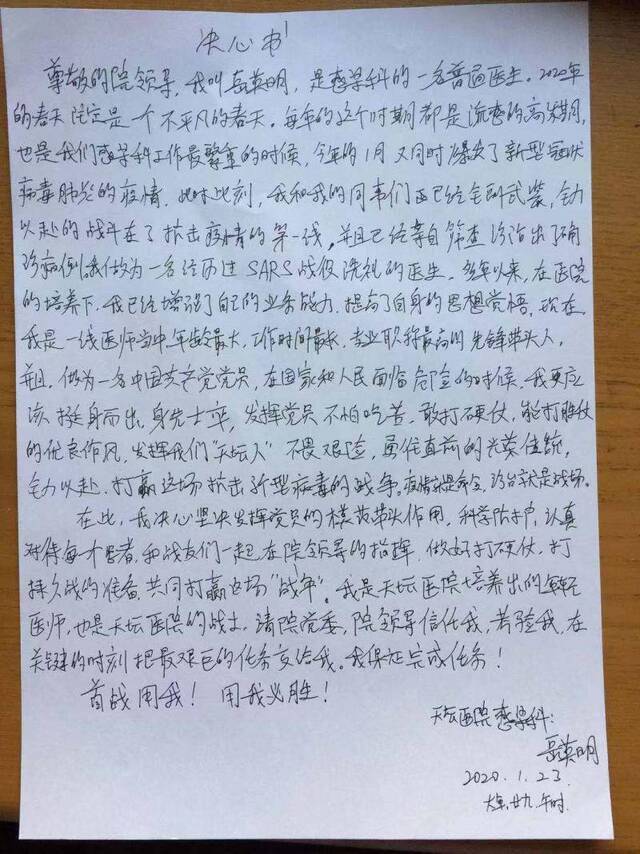 决心书
尊敬的院领导，我叫岳英明，是感染科的一名普通医生。2020年
的春天注定是一个不平凡的春天。每年的这个时期都是流感的高发期，
也是我们感染科工作最繁重的时候，今年的1月又同时爆发了新型冠状
病毒肺炎的疫情。此时此刻，我和我的同事们已经全副武装，全力
以赴的战斗在了抗击疫情的第一线，并且已经亲自筛查诊治出了确
诊病例。我做为一名经历过SARS战役洗礼的医生，多年以来，在医院
的培养下，我已经增强了自己的业务能力，提高了自身的思想觉悟，现在
我是一线医师当中年龄最大，工作时间最长，专业职称最高的先锋带头人，
并且，做为一名中国共产党党员，在国家和人民面临危险的时候，我更应
该挺身而出，身先士卒，发挥党员不怕吃苦，敢打硬仗，能打胜仗
的优良作风，发挥我们“天坛人”不畏艰险，勇往直前的光荣传统，
全力以赴，打赢这场抗击新型病毒的战争。疫情就是命令，诊台就是战场。
在此，我决心坚决发挥党员的模范带头作用，科学防护，认真
对待每个患者，和战友们一起，在院领导的指挥，做好打硬仗，打
持久战的准备，共同打赢这场“战争”。我是天坛医院培养出的年轻
医师，也是天坛医院的战士，请院党委，院领导信任我，考验我，在
关键的时刻把最艰巨的任务交给我。我保证完成任务！
首战用我！用我必胜！
天坛医院感染科：
岳英明
2020.1.23.
大年廿九.午时.